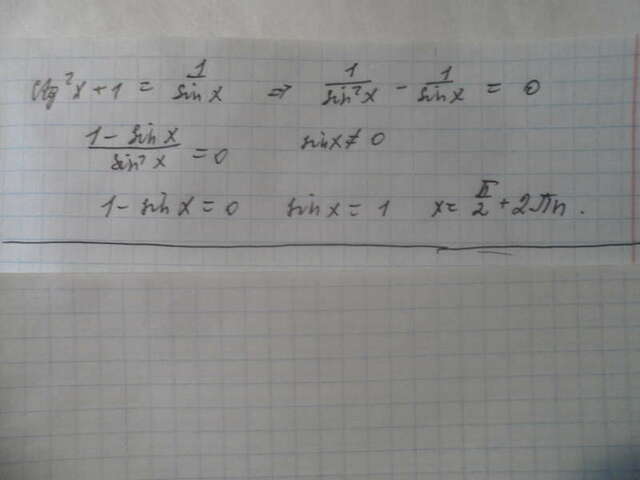 ctg²x + 1 = 1/sin x ⇒ 1/sin²x - 1/sin x = 0
(1 - sin x)/sin²x = 0 sin x ≠ 0
1 - sin x = 0 sin x = 1 x = π/2 + 2πn.